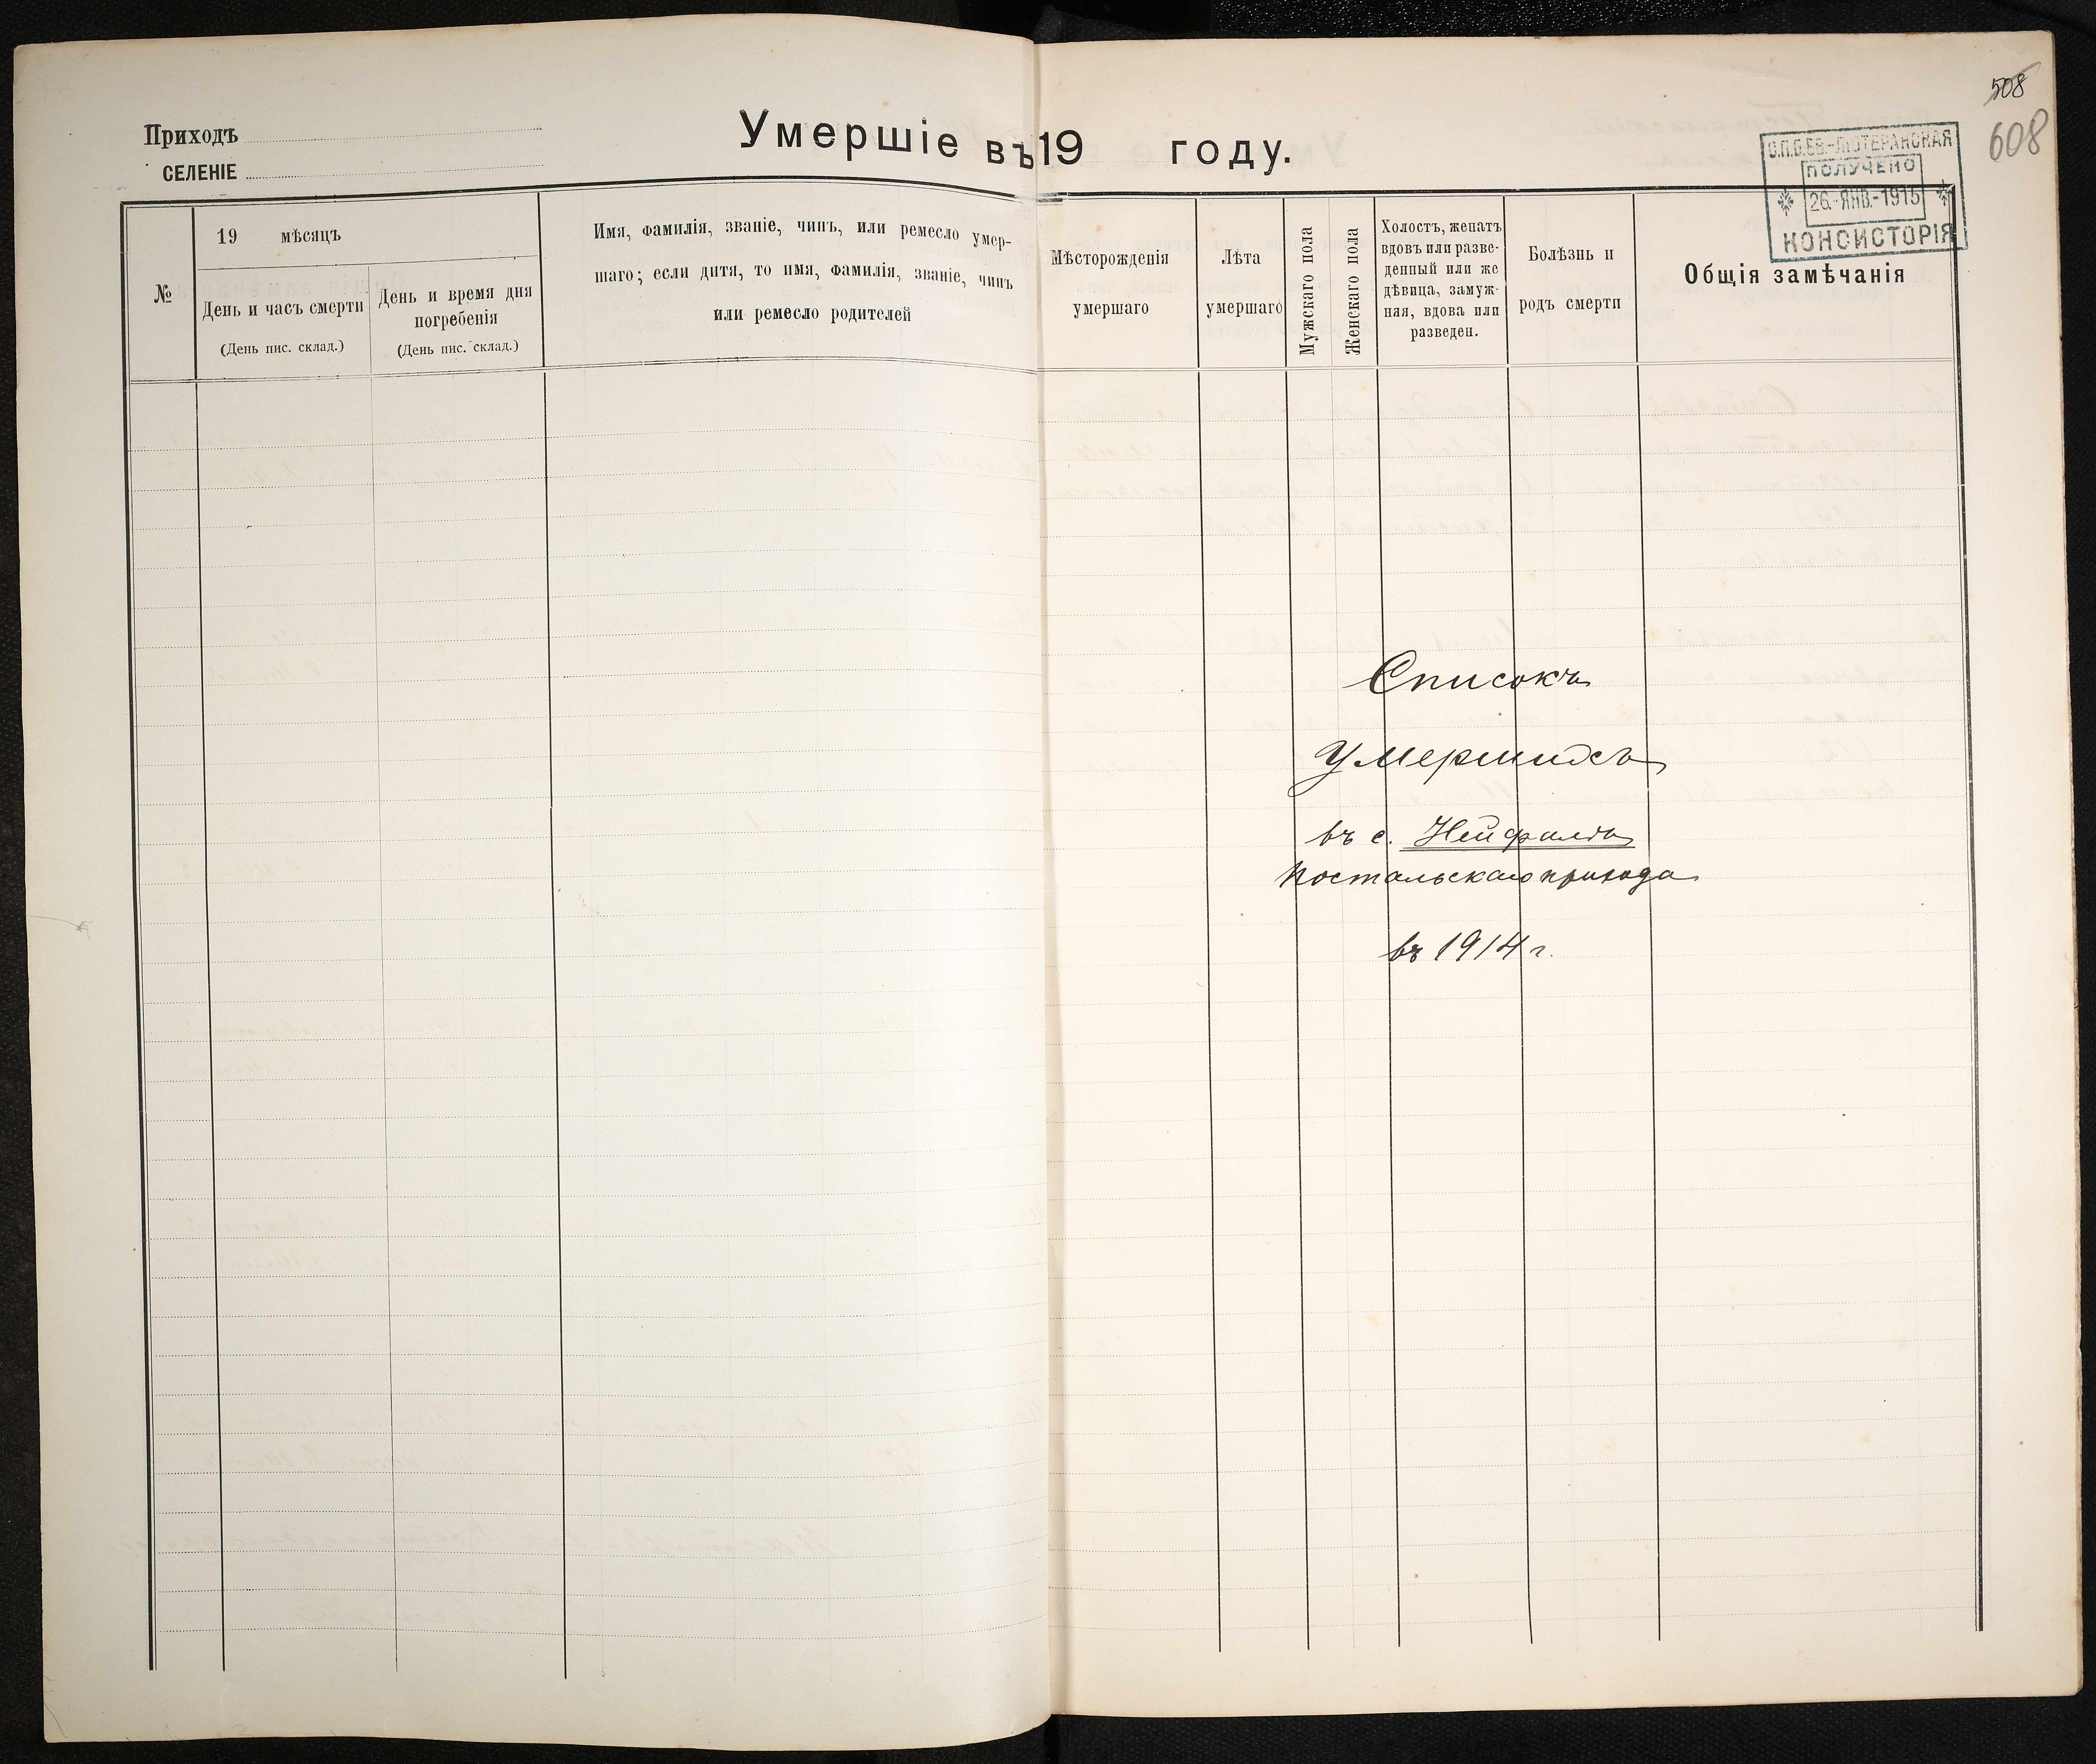 Приходъ
СЕЛЕНІЕ
Умершіе въ 19 году.
508
608
С.П.Б.ЕВ.-ЛЮТЕРАНСКАЯ
ПОЛУЧЕНО
26.-ЯНВ.-1915
КОНСИСТОРІЯ
№
19 мѣсяцъ
День и часъ смерти
(День пис. склад.)
День и время дня
погребенія
(День пис. склад.)
Имя, фамилія, званіе, чинъ, или ремесло умер-
шаго; если дитя, то имя, фамилія, званіе, чинъ
или ремесло родителей
Мѣсторожденія
умершаго
Лѣта
умершаго
Мужскаго пола
Женскаго пола
Холостъ, женатъ
вдовъ или разве-
денный или же
дѣвица, замуж-
няя, вдова или
разведен.
Болѣзнь и
родъ смерти
Общія замѣчанія
Списокъ
умершихъ
въ с. Нейфалъ
Постальскаго прихода
въ 1914 г.